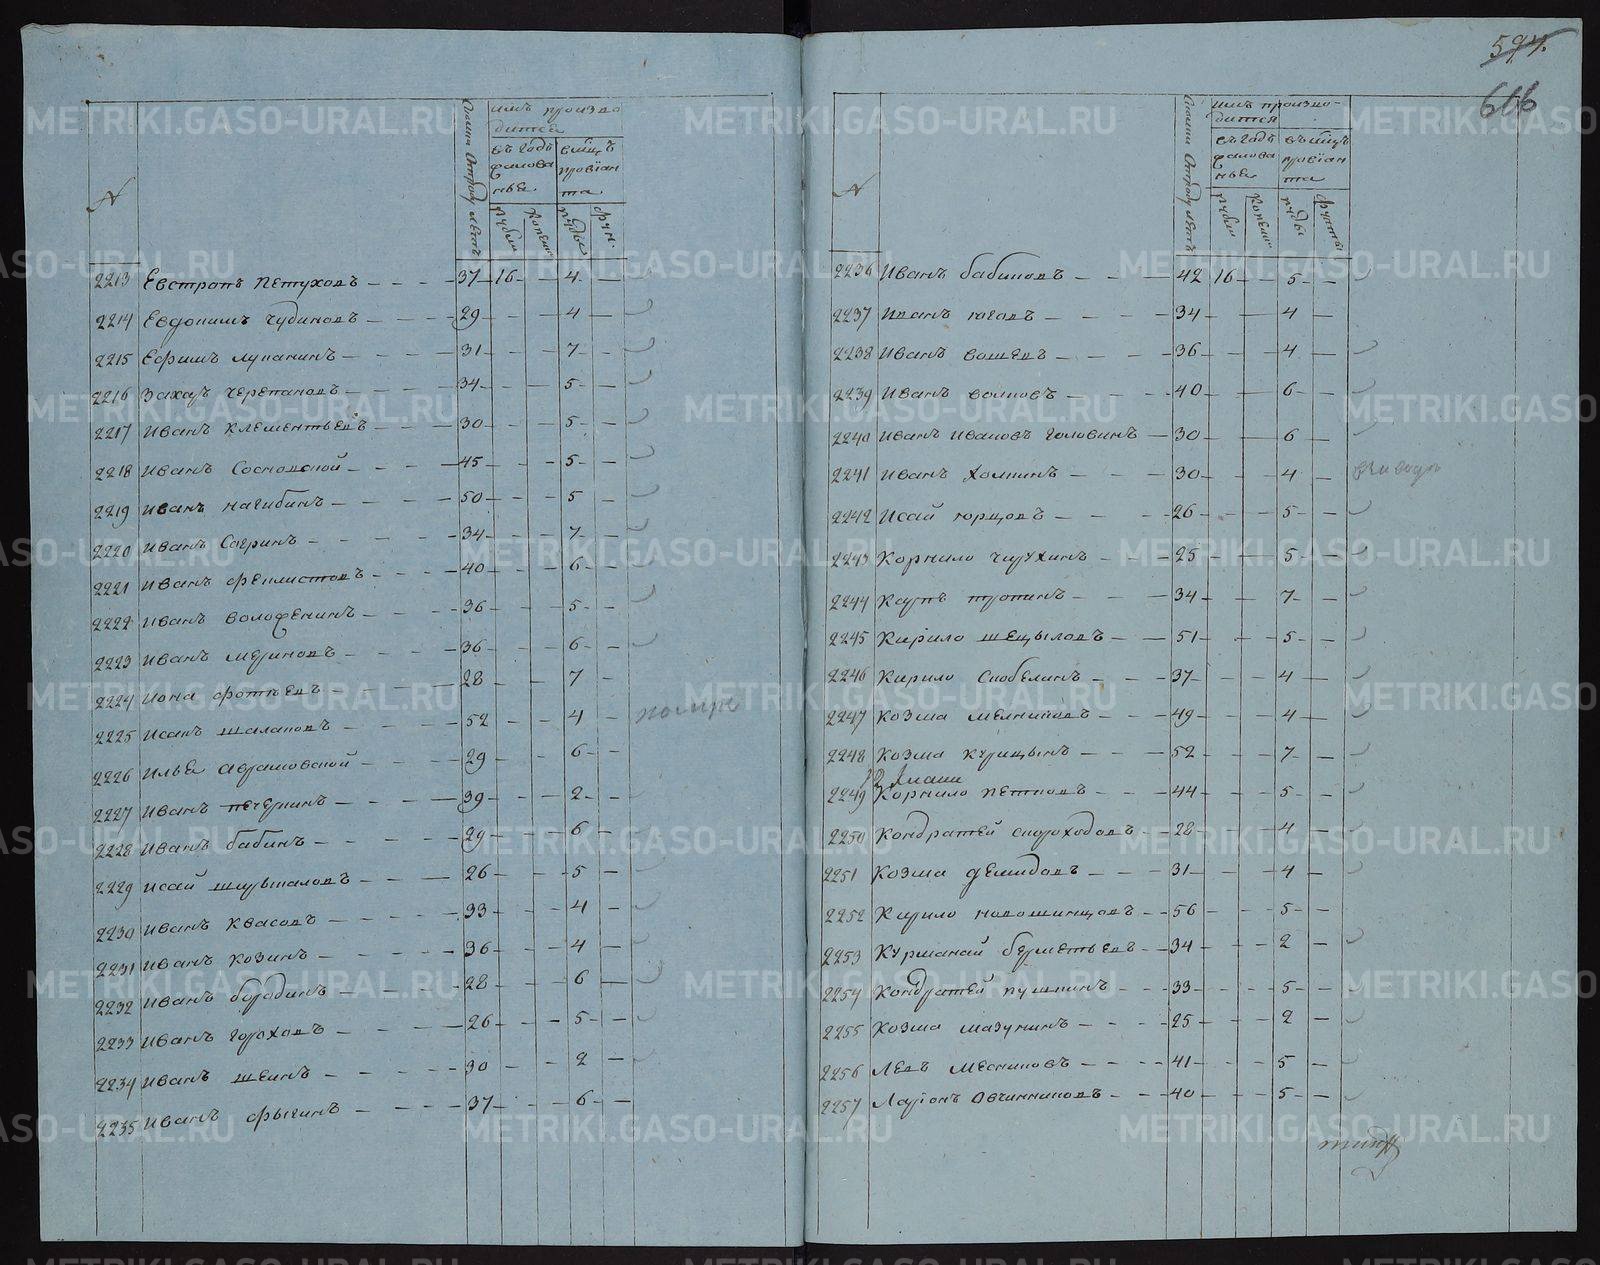 594.
606
№
имъ произво
дится
въ годъ
жалова
нье
въ мцъ
провіан
та
рубли
копеи
пуды
фун.
2213 Евстропъ Петуховъ — — — 37 — 16 — — 4 —
2214 Евдокимъ Чудиновъ — — — 29 — — — 4 —
2215 Ефимъ Лупанинъ — — — 31 — — — 7 —
2216 Захаръ Черепановъ — — — 34 — — — 5 —
2217 Иванъ Клементьевъ — — — 30 — — — 5 —
2218 Иванъ Сосновской — — — 45 — — — 5 —
2219 Иванъ Нагибинъ — — — 50 — — — 5
2220 Иванъ Согринъ — — — 34 — — — 7 —
2221 Иванъ Феклистовъ — — — 40 — — — 6 —
2222 Иванъ — — — 36 — — — 5 —
2223 Иванъ Мериновъ — — — 36 — — — 6 —
2224 Иона Фотеевъ — — — 28 — — 7
2225 Исакъ Шалаповъ — — — 52 — — 4 — помре
2226 Илья Абрамовской — — — 29 — — 6 —
2227 Иванъ Печеркинъ — — — 39 — — 2 —
2228 Иванъ Бабинъ — — — 29 — — — 6 —
2229 Исай — — — 26 — — — 5 —
2230 Иванъ Квасовъ — — — 33 — — 4 —
2231 Иванъ Козинъ — — — 36 — — — 4 —
2232 Иванъ Бородинъ — — — 28 — — — 6 —
2233 Иванъ Гороховъ — — — 26 — — — 5 —
2234 Иванъ Шеинъ — — — 30 — — 2 —
2235 Иванъ — — — 37 — — — 6 —
№
имъ произво-
дится
въ годъ
жалова
нье
въ мцъ
провіан
та
рубли
копеи
пуды
фунты
2236 Иванъ Бабиновъ — — — 42 16 — — 5 —
2237 Иванъ Юговъ — — — 34 — — — 4 —
2238 Иванъ — — — 36 — — — 4 —
2239 Иванъ Волковъ — — — 40 — — — 6 —
2240 Иванъ Ивановъ Головинъ — 30 — — — 6 —
2241 Иванъ Холкинъ — — — 30 — — — 4 —
2242 Исай Юрцовъ — — — 26 — — — 5 —
2243 Корнило Чирухинъ — — — 25 — — — 5 —
2244 Карпъ Тропинъ — — — 34 — — — 7 —
2245 Кирило — — — 51 — — — 5 —
2246 Кирило Скобелинъ — — — 37 — — — 4 —
2247 Козма Мелниковъ — — — 49 — — — 4 —
2248 Козма Курицынъ — — — 52 — — — 7 —
2249 Корнило Петновъ — — — 44 — — — 5 —
2250 Кондратей Скороходовъ — 28 — — — 4 —
2251 Козма Демидовъ — — — 31 — — — 4 —
2252 Кирило Новошинцовъ — — 56 — — — 5 —
2253 Курманай Берметьевъ — — 34 — — — 2 —
2254 Кондратей Пушкинъ — — 33 — — — 5 —
2255 Козма Мазунинъ — — — 25 — — — 2 —
2256 Левъ Месниковъ — — — 41 — — — 5 —
2257 Ларіонъ Овчинниковъ — — 40 — — — 5 —